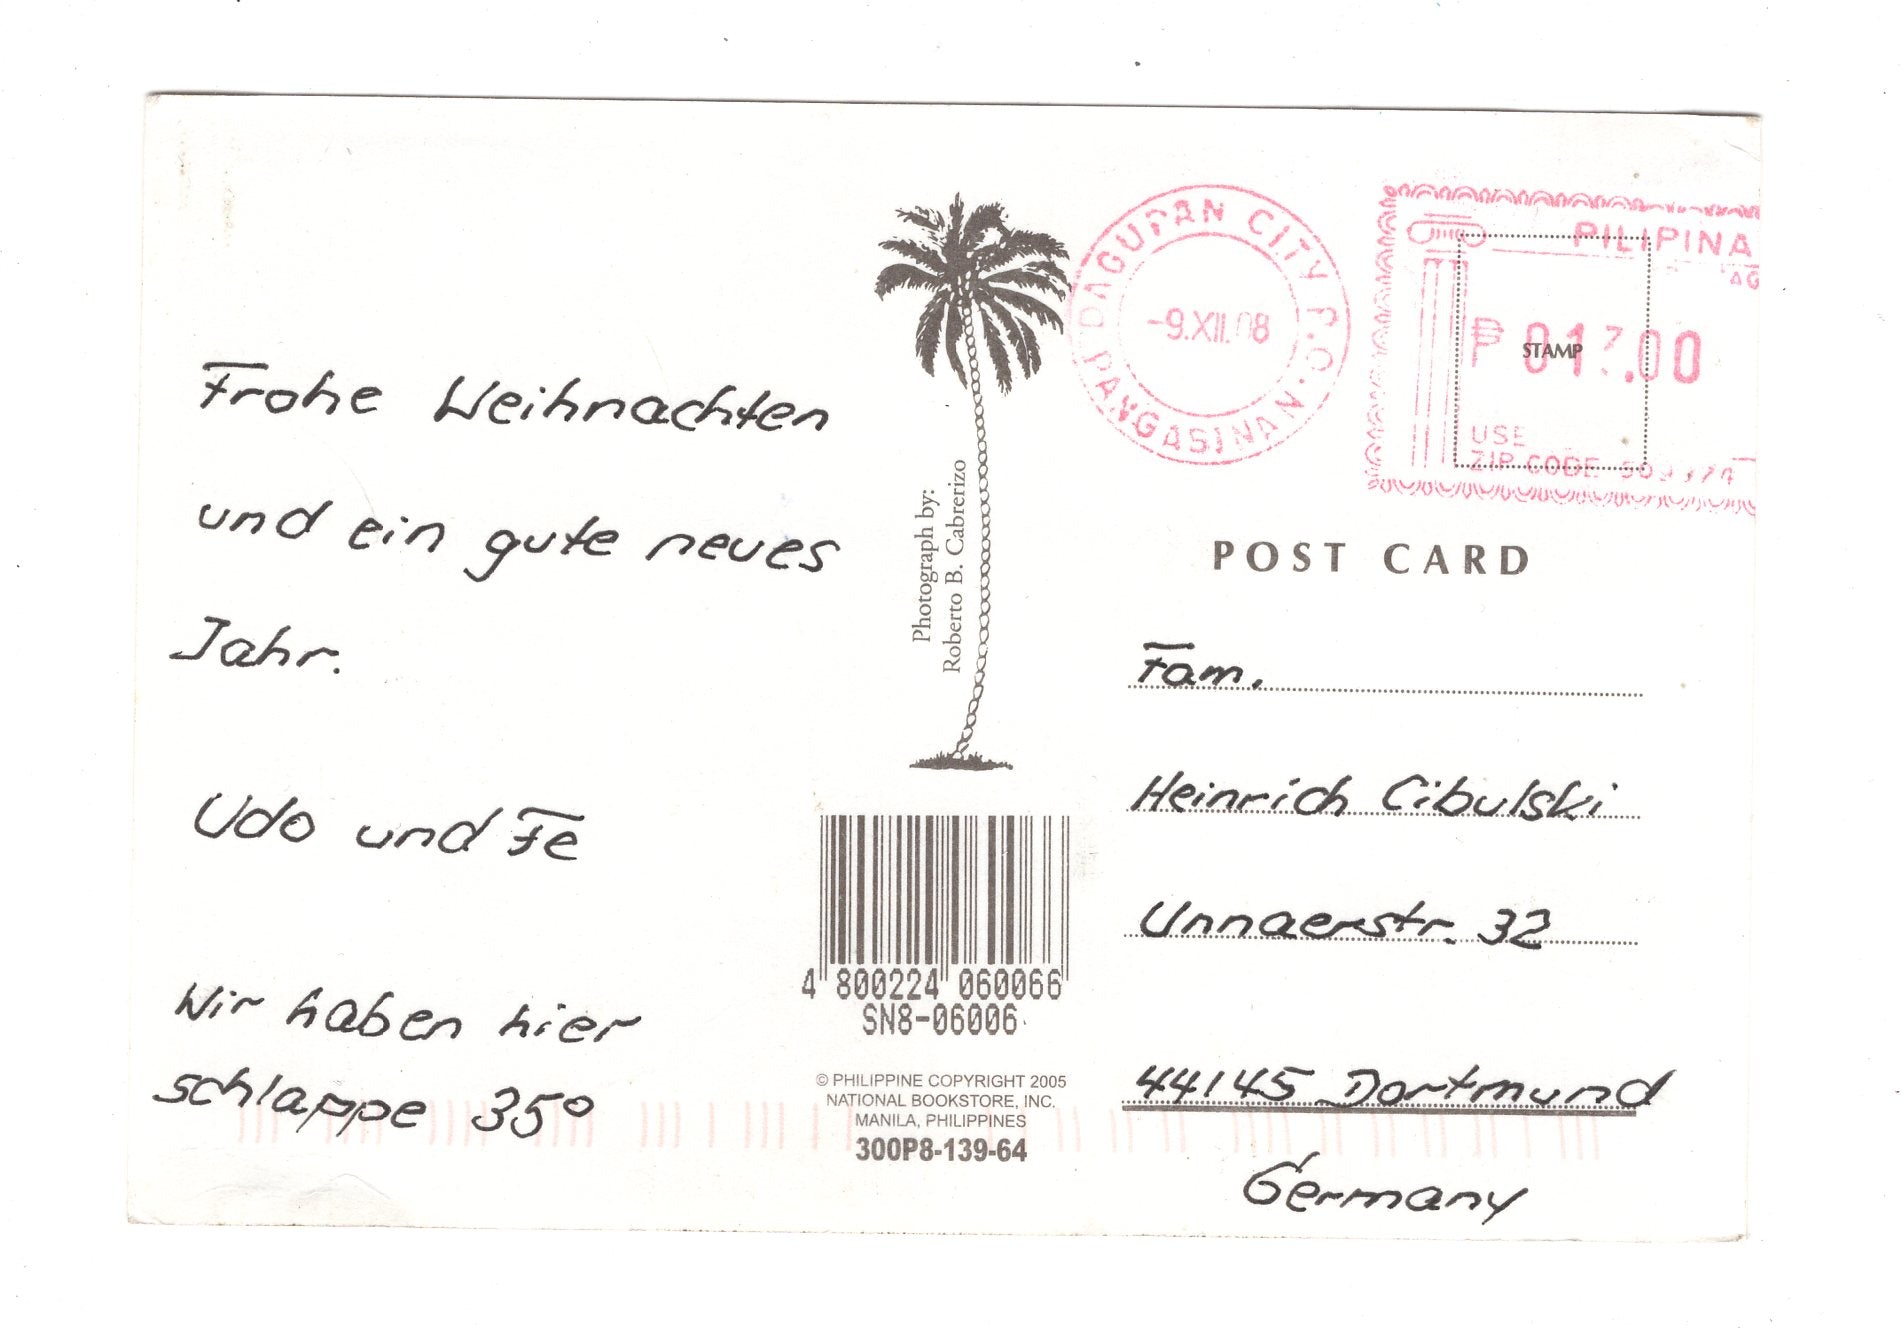 Frohe Weihnachten
und ein gute neues
Jahr.
Udo und Fe
Wir haben hier
schlappe 35°
Photograph by:
Roberto B. Cabrerizo
4 800224 060066
SN8-06006
© PHILIPPINE COPYRIGHT 2005
NATIONAL BOOKSTORE, INC.
MANILA, PHILIPPINES
300P8-139-64
DAGUPAN CITY P.O.
PANGASINAN
-9.XII.08
PILIPINA
AG
₱ 017.00
STAMP
USE
ZIP CODE
POST CARD
Fam.
Heinrich Cibulski
Unnaerstr. 32
44145 Dortmund
Germany